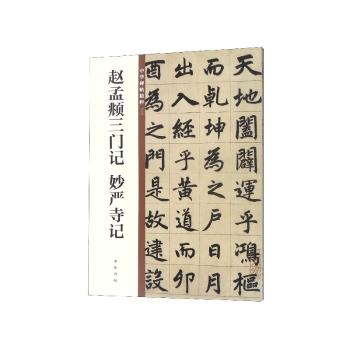 赵孟頫三门记 妙严寺记
中华书局
天地闔闢運乎鴻樞
而乾坤為之戶日月
出入經乎黃道而卯
酉為之門是故建設